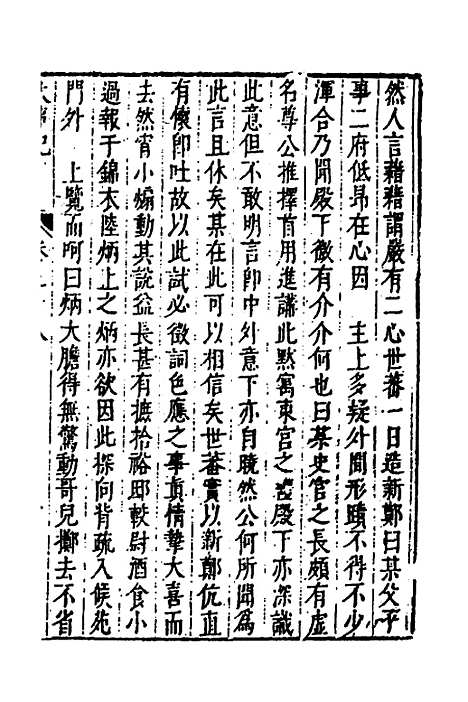 然人言藉藉謂嚴有二心世蕃一日造新鄭曰某父平
事二府低昂在心因　主上多疑外閒形蹟不得不少
渾合乃聞殿下微有介介何也曰某史官之長頗有虛
名尊公推擇首用進講此默寓東宮之意殿下亦深識
此意但不敢明言卽中外意下亦自曉然公何所聞爲
此言且休矣某在此可以相信矣世蕃實以新鄭伉直
有懷卽吐故以此試必徵詞色應之事真情摯大喜而
去然宵小煽動其說益長甚有摭拾裕邸較尉酒食小
過報于錦衣陸炳上之炳亦欲因此探向背疏入候苑
門外　上覽而呵曰炳大膽得無驚動哥兒擲去不省
大事記